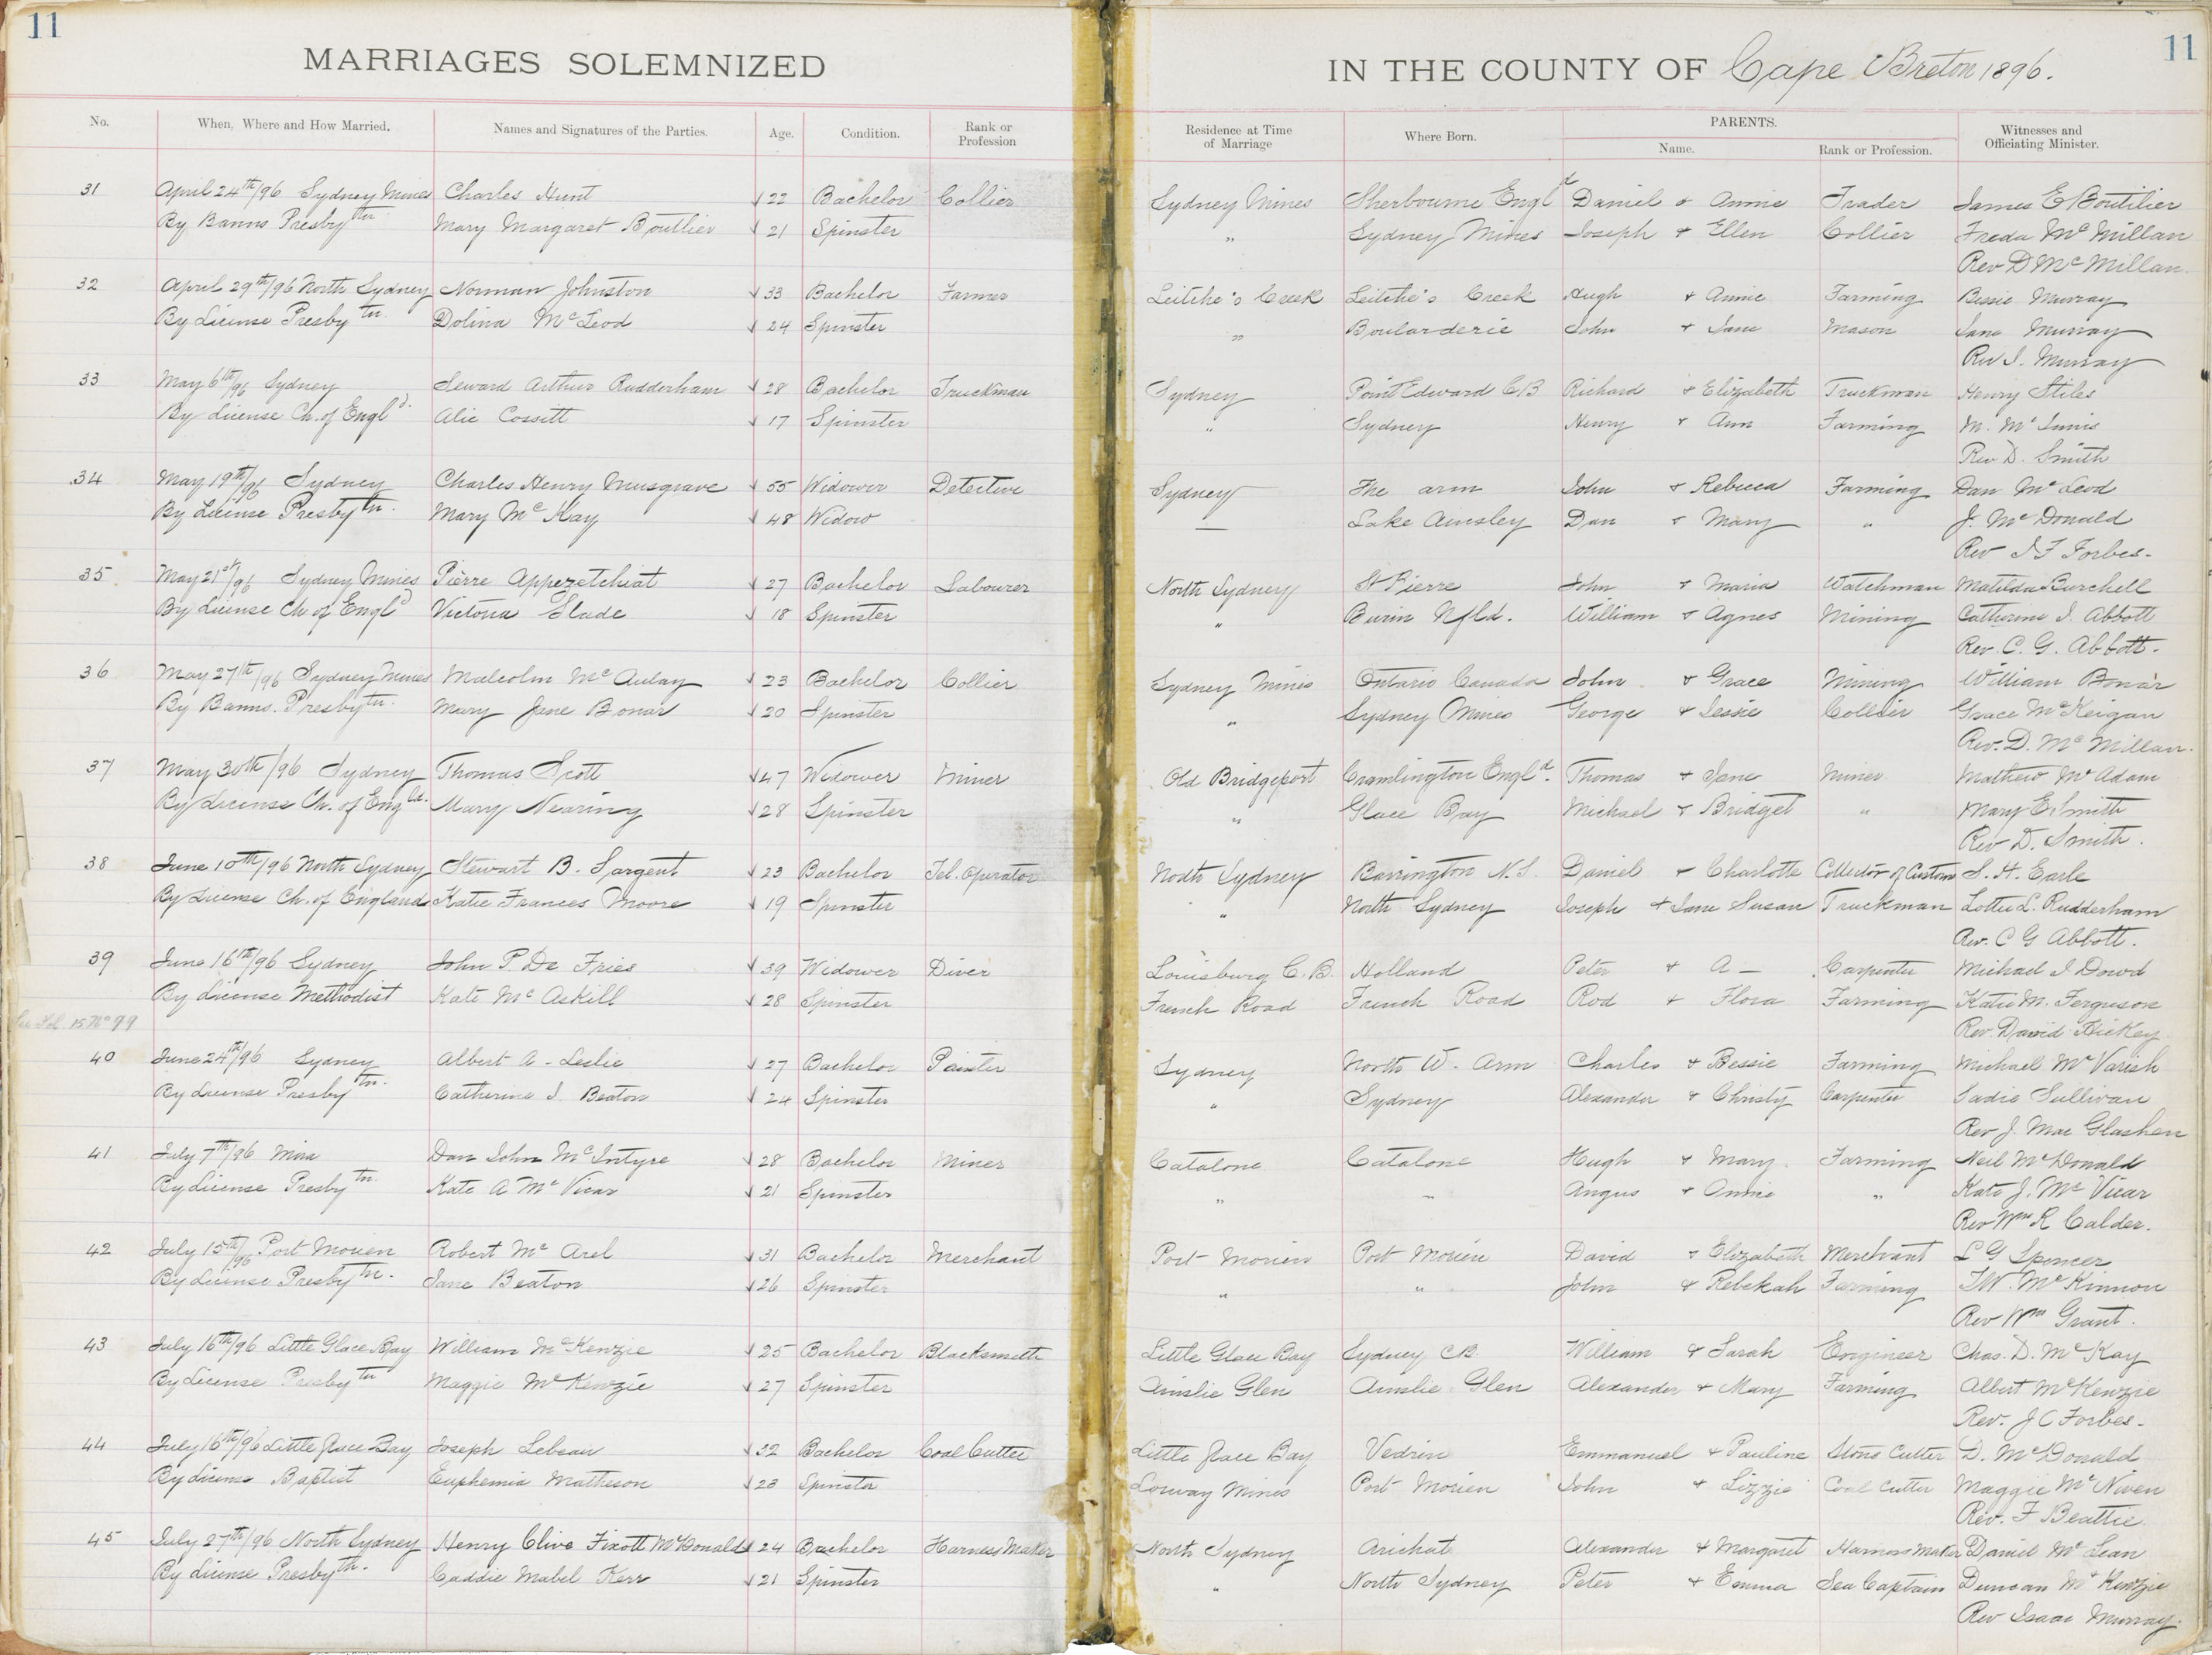 11
11
MARRIAGES SOLEMNIZED
IN THE COUNTY OF Cape Breton 1896.
No. When, Where and How Married. Names and Signatures of the Parties. Age. Condition. Rank or Profession Residence at Time of Marriage Where Born. PARENTS. Name. Rank or Profession. Witnesses and Officiating Minister.
31 April 24th/96 Sydney Mines Charles Hunt √ 22 Bachelor Collier Sydney Mines Sherbourne Engld Daniel & Annie Trader James E Boutilier
By Banns Presbytn Mary Margaret Boutlier √ 21 Spinster " Sydney Mines Joseph & Ellen Collier Freda McMillan
Rev D McMillan
32 April 29th/96 North Sydney Norman Johnston √ 33 Bachelor Farmer Leitche's Creek Leitche's Creek Hugh & Annie Farming Bessie Murray
By License Presbytn. Dolina McLeod √ 24 Spinster " Boularderie John & Jane Mason Jane Murray
Rev I. Murray
33 May 6th/96 Sydney Seward Arthur Rudderham √ 28 Bachelor Truckman Sydney Point Edward CB Richard & Elizabeth Truckman Henry Stiles
By License Ch. of Engld. Alie Cossitt √ 17 Spinster " Sydney Henry & Ann Farming M. McInnis
Rev D. Smith
34 May 19th/96 Sydney Charles Henry Musgrave √ 55 Widower Detective Sydney The arm John & Rebecca Farming Dan McLeod
By License Presbytn. Mary McKay √ 48 Widow — Lake Ainsley Dan & Mary " J. McDonald
Rev J F Forbes.
35 May 21st/96 Sydney Mines Pièrre Appezetchiat √ 27 Bachelor Labourer North Sydney St Pierre John & Maria Watchman Matilda Burchell
By License Ch of Engld Victoria Slade √ 18 Spinster " Burin Nfld. William & Agnes Mining Catherine I. Abbott
Rev. C. G. Abbott.
36 May 27th/96 Sydney Mines Malcolm McAulay √ 23 Bachelor Collier Sydney Mines Ontario Canada John & Grace Mining William Bonar
By Banns. Presbytn. Mary Jane Bonar √ 20 Spinster " Sydney Mines George & Jessie Collier Grace McKeigan
Rev. D. McMillan.
37 May 30th/96 Sydney Thomas Scott √ 47 Widower Miner Old Bridgeport Cramlington Engld. Thomas & Jane Miner Mathew McAdam
By License Ch. of Engld. Mary Nearing √ 28 Spinster " Glace Bay Michael & Bridget " Mary E. Smith
Rev D. Smith.
38 June 10th/96 North Sydney Stewart B. Sargent √ 23 Bachelor Tel. Operator North Sydney Barrington N.S. Daniel & Charlotte Collector of Custom S. H. Earle
By License Ch. of England Katie Frances Moore √ 19 Spinster " North Sydney Joseph & Jane Susan Truckman Lottie L. Rudderham
Rev. C G Abbott.
39 June 16th/96 Sydney John P. De Fries √ 39 Widower Diver Louisburg C.B. Holland Peter & A — Carpenter Michael J Dowd
By License Methodist Kate McAskill √ 28 Spinster French Road French Road Rod & Flora Farming Katie M. Ferguson
See Fol. 15 No 99 Rev David Hickey
40 June 24th/96 Sydney Albert A - Leslie √ 27 Bachelor Painter Sydney North W. Arm Charles & Bessie Farming Michael McVarish
By License Presbytn. Catherine J. Beaton √ 24 Spinster " Sydney Alexander & Christy Carpenter Sadie Sullivan
Rev J. Mac Glashen
41 July 7th/96 Mira Dan John McIntyre √ 28 Bachelor Miner Catalone Catalone Hugh & Mary Farming Neil McDonald
By License Presbytn. Kate A McVicar √ 21 Spinster " " Angus & Annie " Kate J. McVicar
Rev Wm R Calder.
42 July 15th/96 Port Morien Robert McArel √ 31 Bachelor Merchant Port Morien Port Morien David & Elizabeth Merchant L G Spencer
By License Presbytn. Jane Beaton √ 26 Spinster " " John & Rebekah Farming T.W. McKinnon
Rev Wm Grant.
43 July 16th/96 Little Glace Bay William McKenzie √ 25 Bachelor Blacksmith Little Glace Bay Sydney CB. William & Sarah Engineer Chas. D. McKay
By License Presbytn Maggie McKenzie √ 27 Spinster Ainslie Glen Ainslie Glen Alexander & Mary Farming Albert McKenzie
Rev. J C Forbes.
44 July 16th/96 Little Glace Bay Joseph Lebeau √ 32 Bachelor Coal Cutter Little Glace Bay Vedrin Emmanuel & Pauline Stone Cutter D. McDonald
By License Baptist Euphemia Matheson √ 23 Spinster Lorway Mines Port Morien John & Lizzie Coal Cutter Maggie McNiven
Rev. F Beattie
45 July 27th/96 North Sydney Henry Clive Fixott McDonald √ 24 Bachelor Harness Maker North Sydney Arichat Alexander & Margaret Harness Maker Daniel McLean
By License Presbytn. Caddie Mabel Kerr √ 21 Spinster " North Sydney Peter & Emma Sea Captain Duncan McKenzie
Rev Isaac Murray.